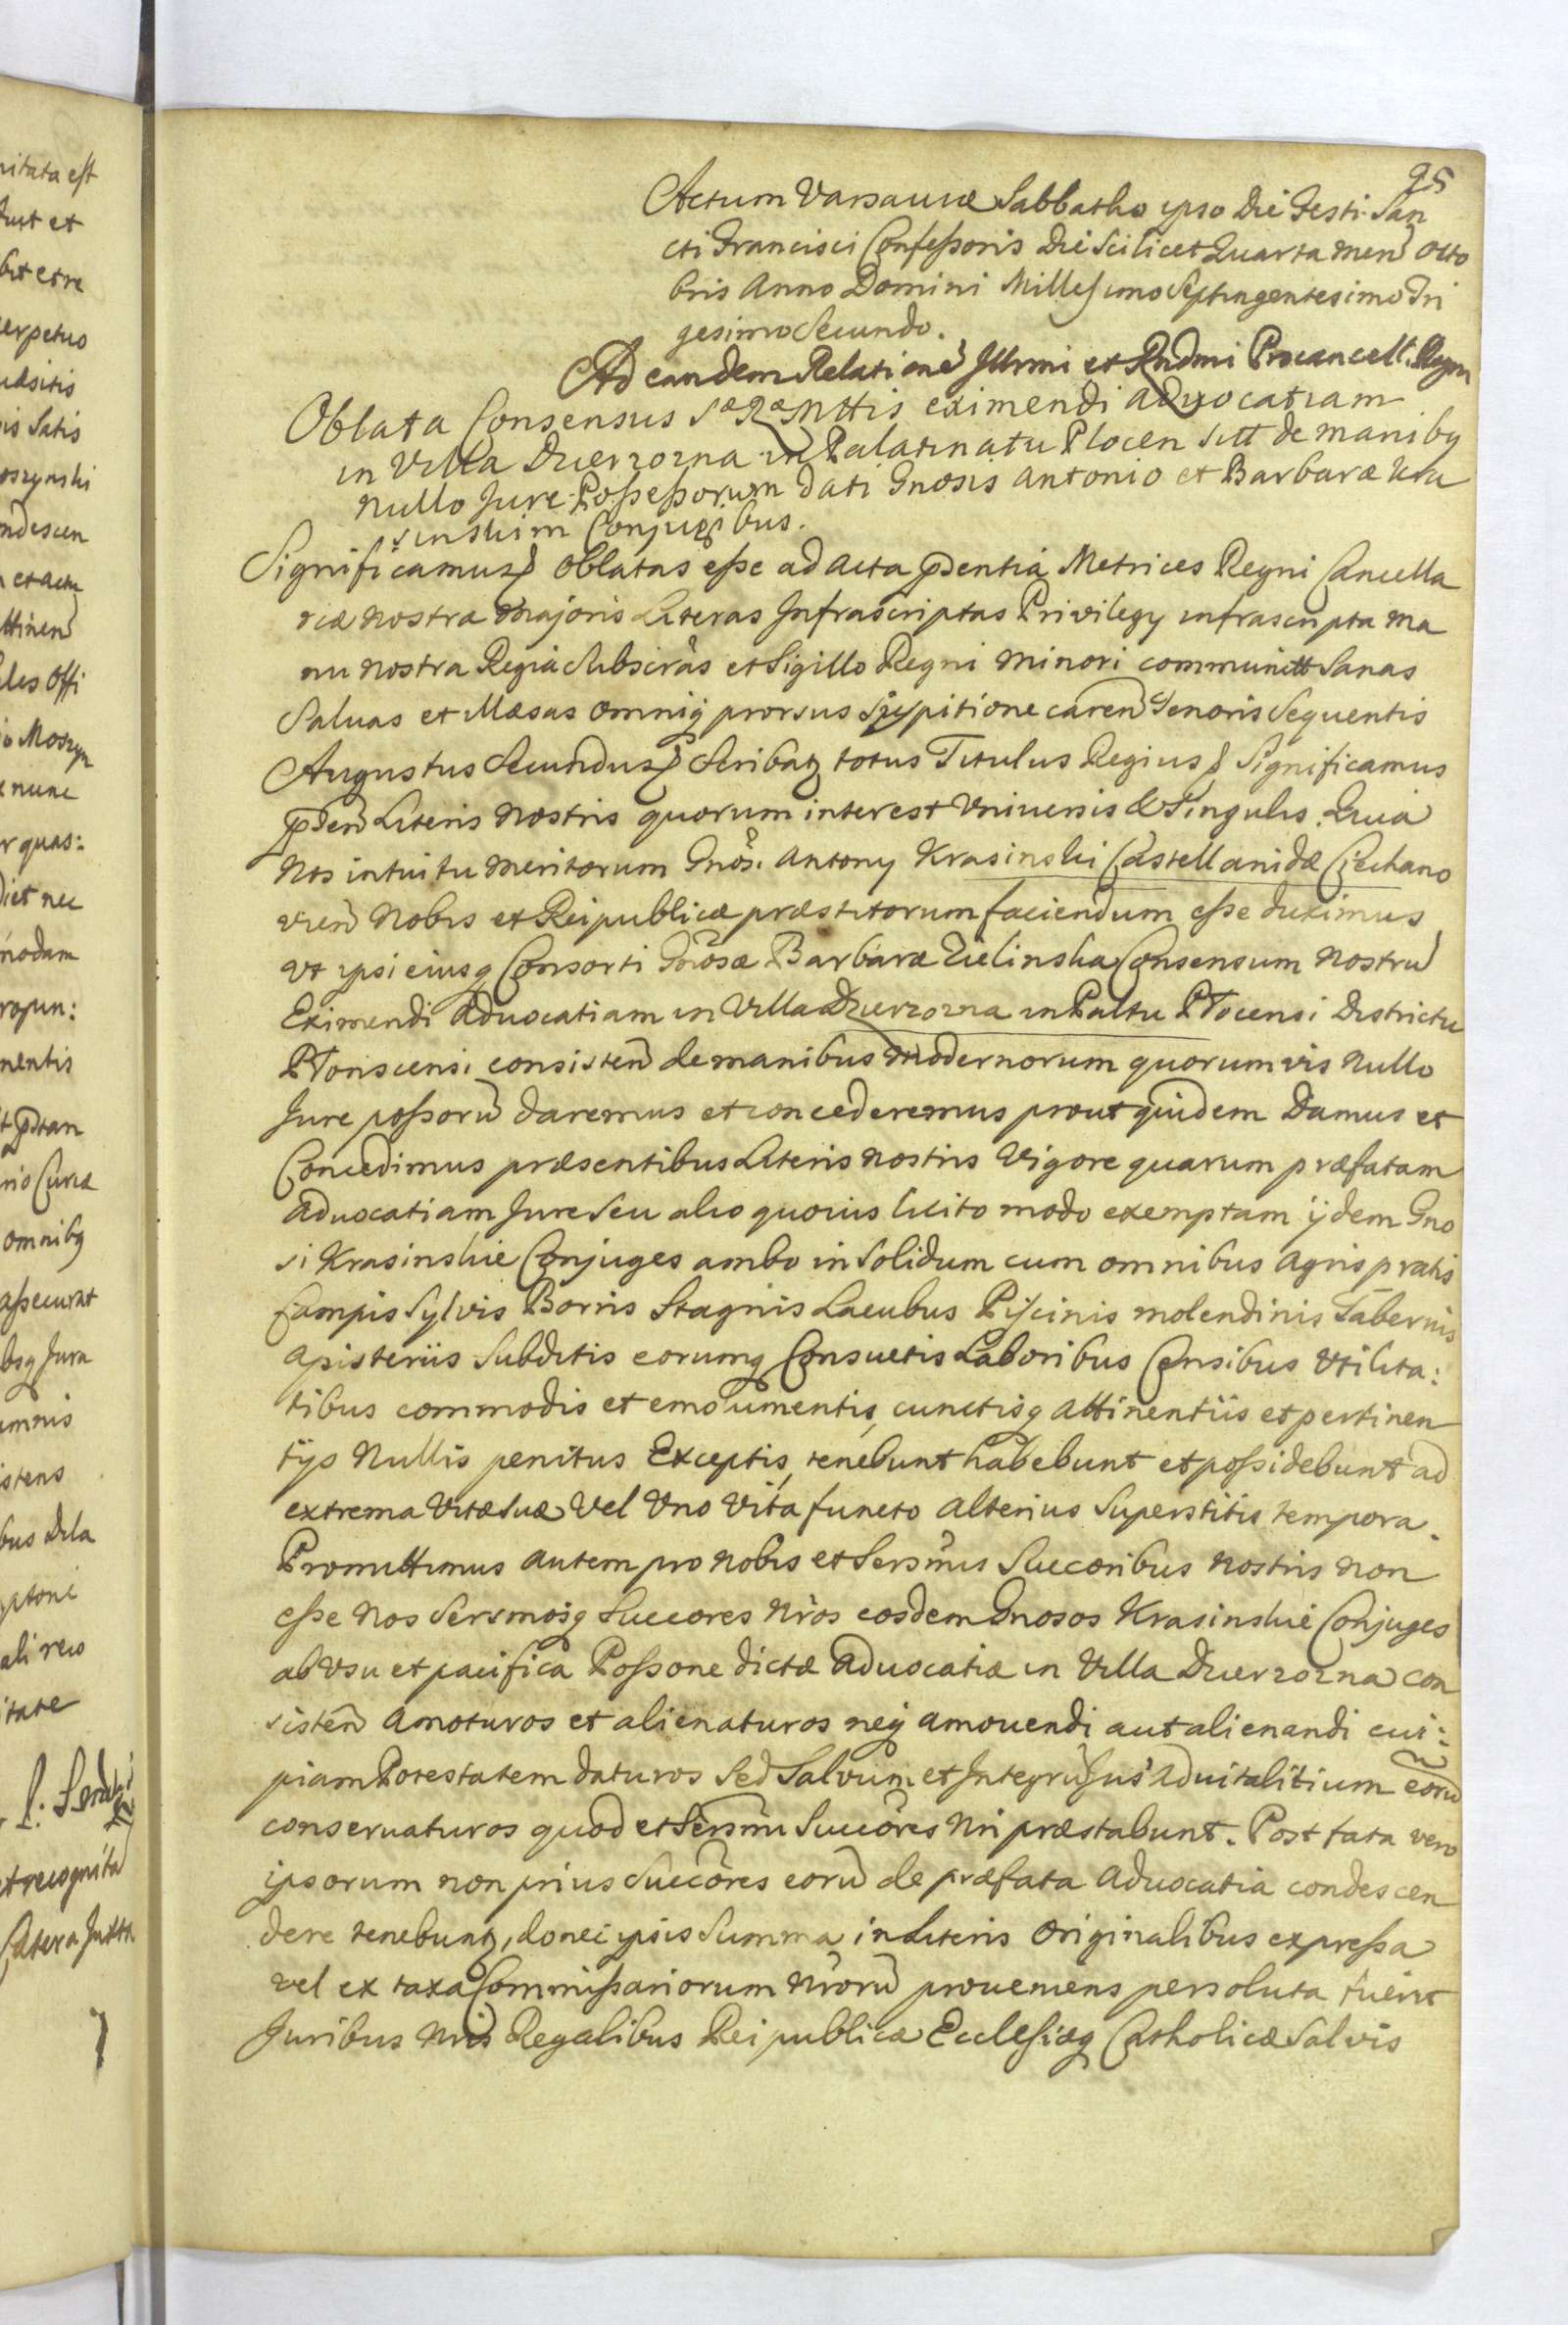 95
Actum Varsauiæ Sabbatho ipso Die Festi San
cti Francisci Confessoris Die Scilicet Quarta Men Octo
bris Anno Domini Millesimo Septingentesimo Tri
gesimo Secundo.
Ad eandem Relatione Illrmi et Rndmi Procancell. Regni
Oblata Consensus Sæ Ræ Mttis eximendi aduocatiam
in Villa Dzierzozna in Palatinatu Plocen sitt de manibq
nullo Jure Possessorum dati Gnosis Antonio et Barbaræ Kra
sinskim Conjugibus.
Significamus Oblatas esse ad acta pdentia Metrices Regni Cancella
riæ nostræ Majoris Literas Infrascriptas Privilegy infrascripta ma
nu nostra Regia Subscras et Sigillo Regni minori communitt Sanas
Saluas et Illæsas omniq prorsus suspitione caren Tenoris Sequentis
Augustus Secundus Scribatz totus Titulus Regius Significamus
pden Literis nostris quorum interest Vniuersis & Singulis. Quia
Nos intuitu meritorum Gnos. Antony Krasinski Castellanidæ Ciechano
vien nobis et Reipublicæ præstitorum faciendum esse duximus
vt ipsi eiusq Consorti Gnosæ Barbaræ Zielinska Consensum nostru
Eximendi Aduocatiam in Villa Dzierzozna in Paltu Plocensi Districtu
Plonscensi consisten de manibus modernorum quorumvis nullo
Jure possoru daremus et concederemus prout quidem Damus et
Concedimus præsentibus Literis nostris Vigore quarum præfatam
aduocatiam Jure Seu alio quouis licito modo exemptam ijdem Gno
si Krasinskie Conjuges ambo in Solidum cum omnibus agris pratis
Campis Sylvis Borris Stagnis Lacubus Piscinis molendinis Tabernis
apisteriis Subditis eorumq Consuetis Laboribus Censibus Vtilita:
tibus commodis et emolumentis, cunctisq attinentiis et pertinen
tijs Nullis penitus Exceptis, tenebunt habebunt et possidebunt ad
extrema Vitæ suæ Vel Vno Vita functo alterius Superstitis tempora.
Promittimus autem pro nobis et Sersmis Succoribus nostris non
esse nos Sersmosq Succores Nros eosdem Gnosos Krasinskie Conjuges
ab Vsu et pacifica Possone dictæ Aduocatiæ in Villa Dzierzozna con
sisten Amoturos et alienaturos neq amouendi aut alienandi cui:
piam Potestatem daturos Sed Salvum et Integru Jus aduitalitium eoru
conseruaturos quod et Sersmi Succores Nri præstabunt. Post fata vero
ipsorum non prius Succores eoru de præfata Aduocatia condescen
dere tenebuntz, donec ipsis Summa in Literis Originalibus expressa
vel ex taxa Commissariorum Nroru proueniens persoluta fuerit
Juribus Nris Regalibus Reipublicæ Ecclesiæq Catholicæ Salvis